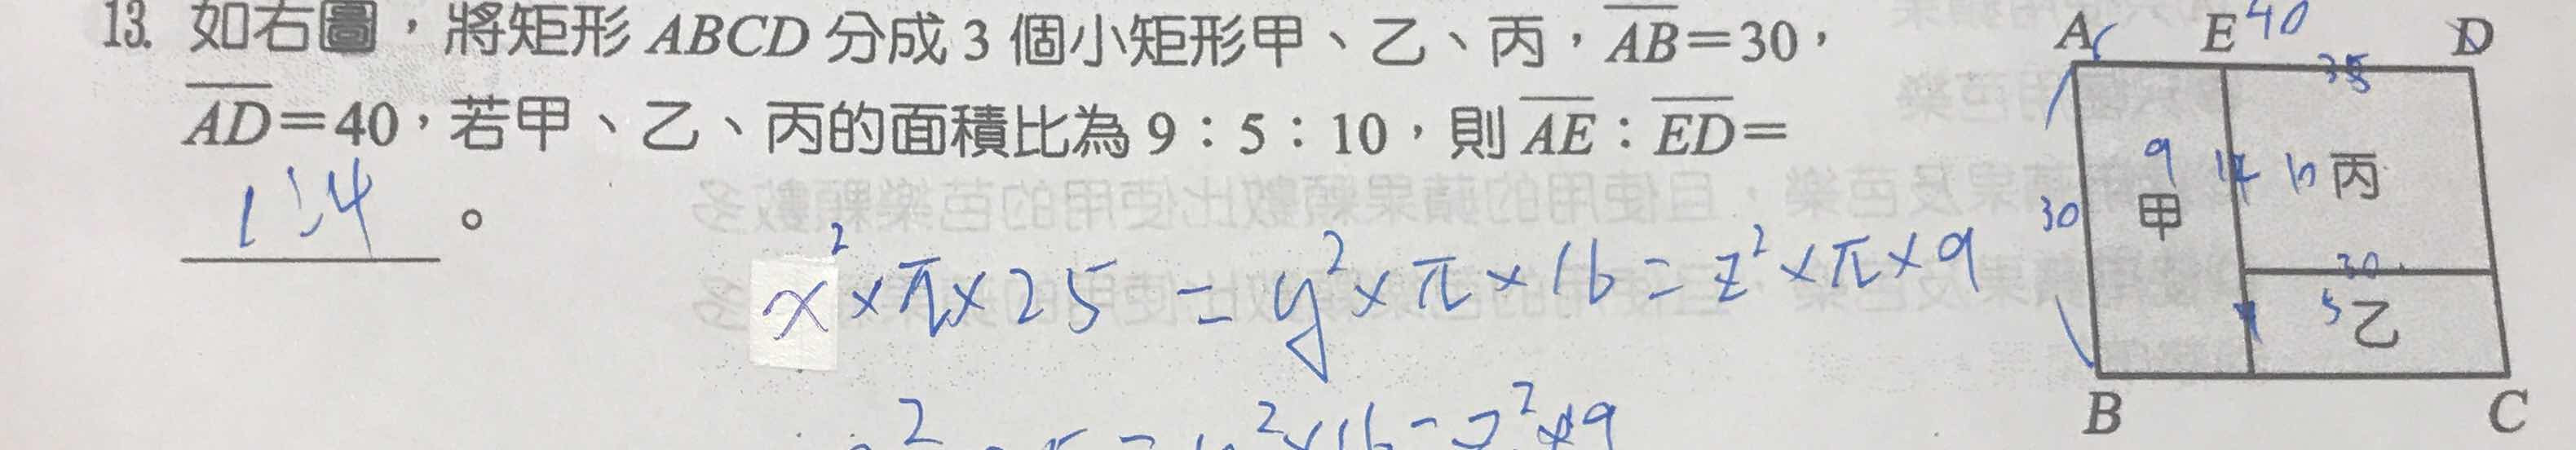 13. 如右圖，將矩形 ABCD 分成 3 個小矩形甲、乙、丙，AB=30，
AD=40，若甲、乙、丙的面積比為 9：5：10，則 AE：ED=
1:4 。
x²×π×25 = y²×π×16 = z²×π×9
A E 40 D
9 10 丙
30 甲
30
5 乙
B C